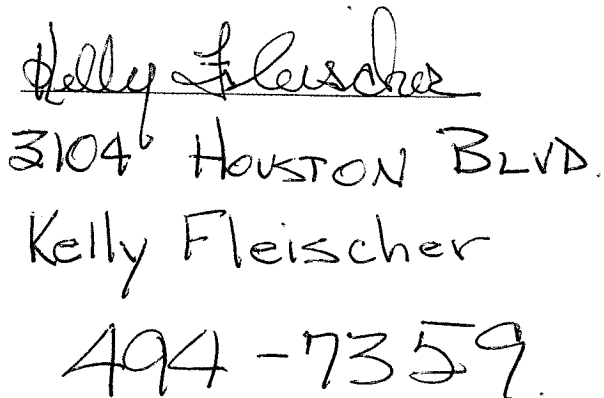 Kelly Fleischer
3104 HOUSTON BLVD.
Kelly Fleischer
494-7359.